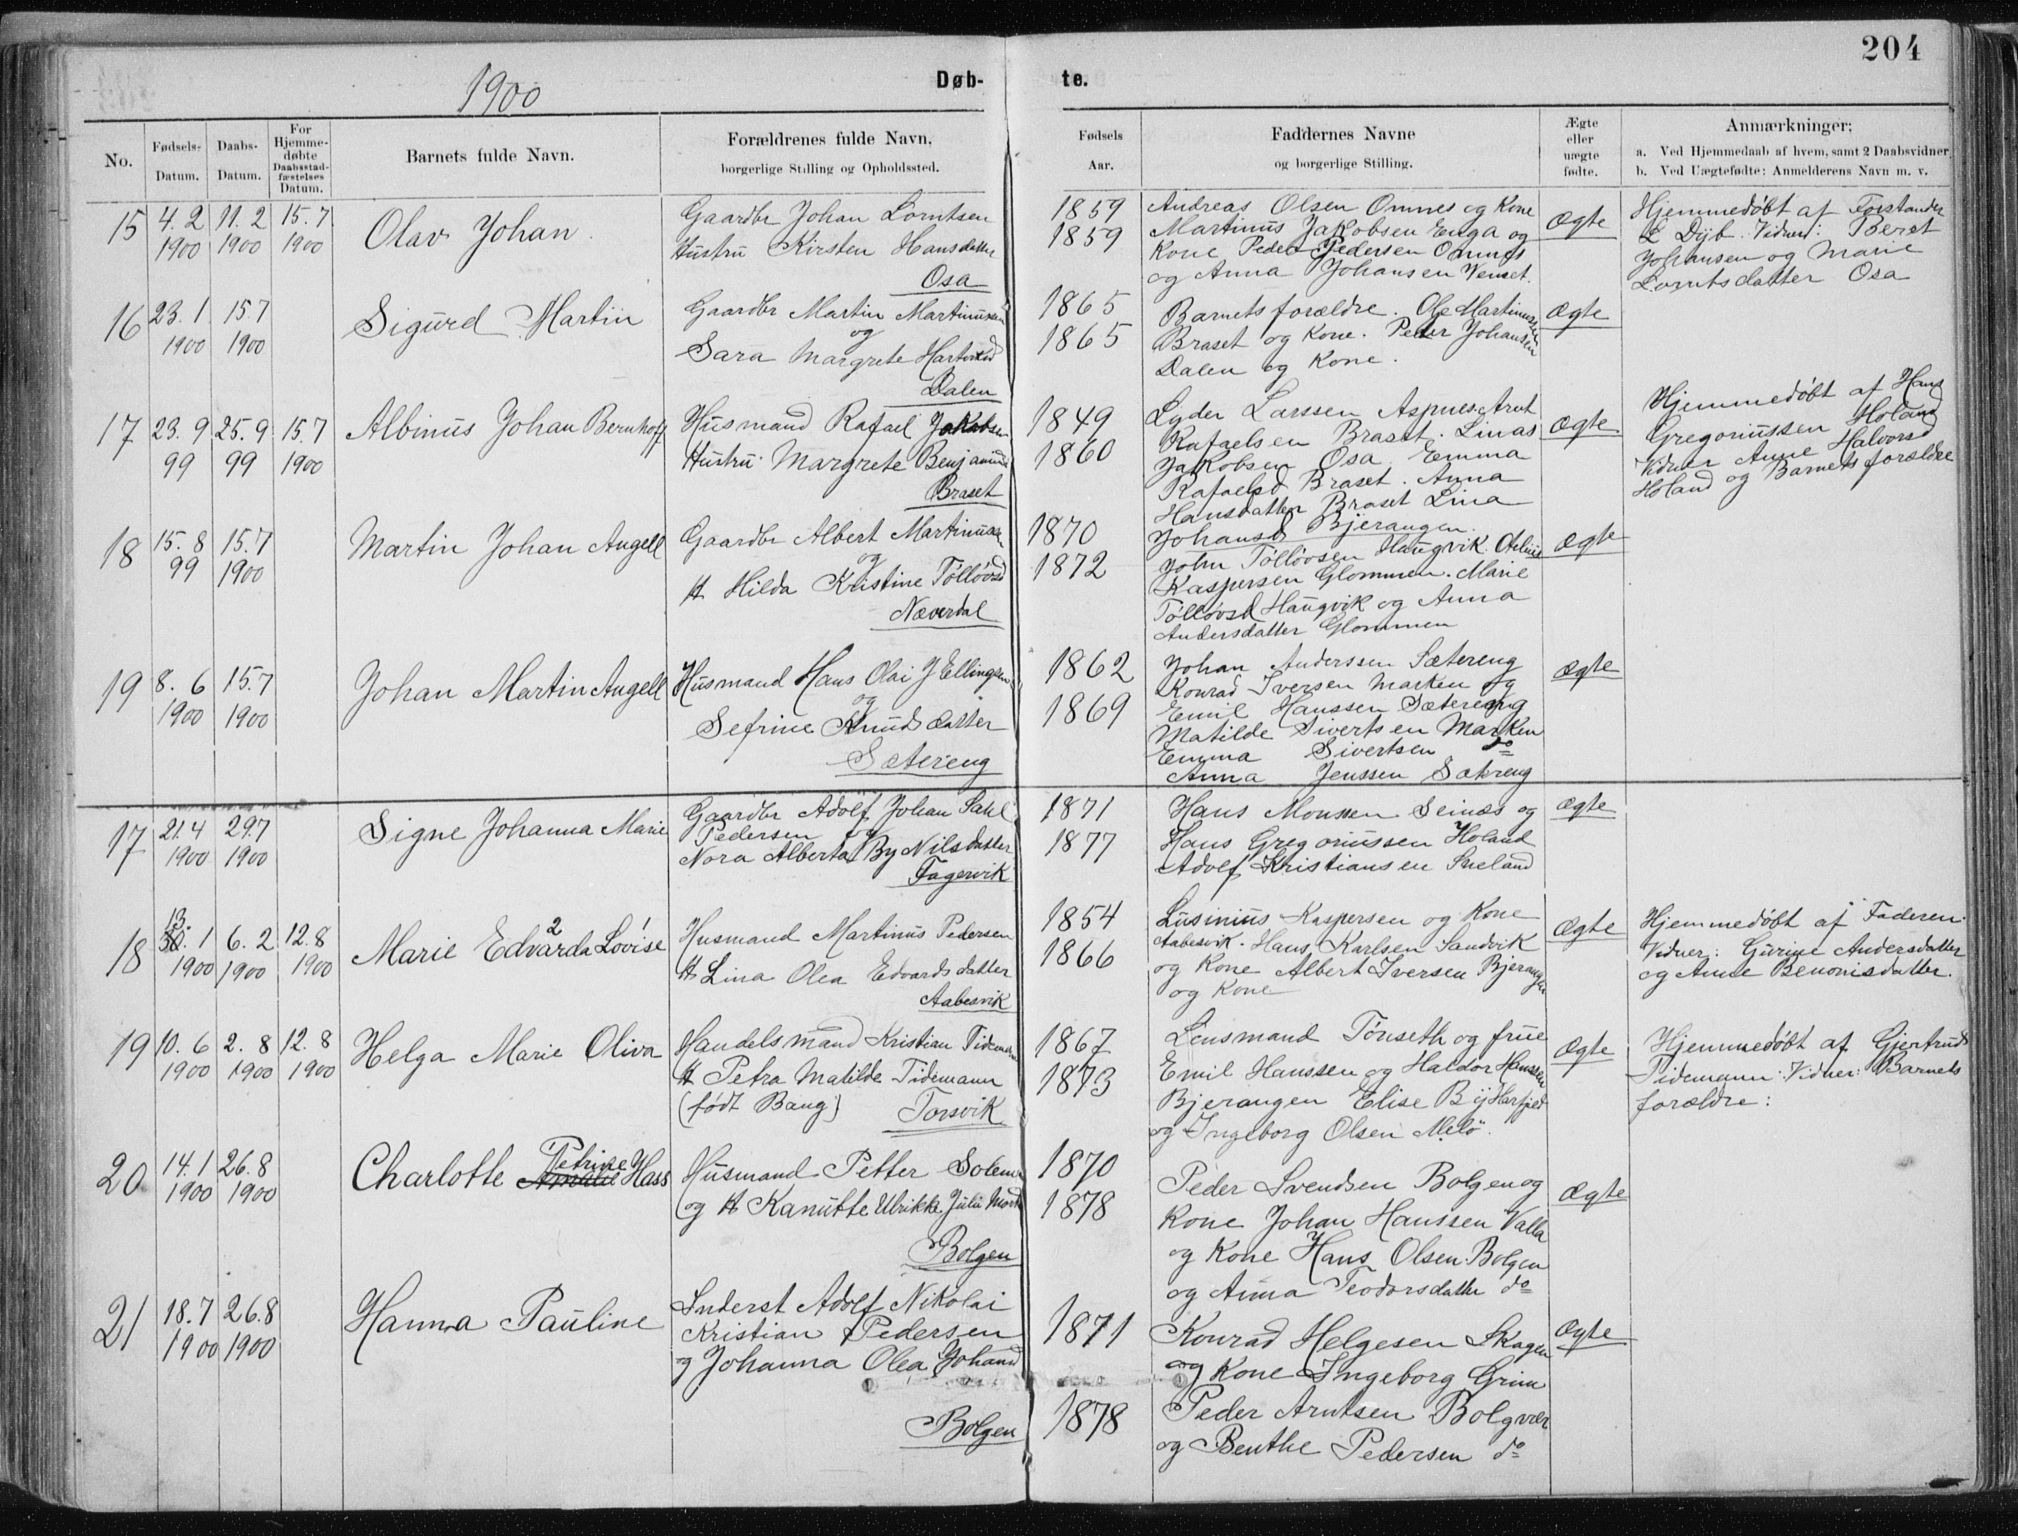 204
1900
Døb-
te.
No.
Fødsels-
Datum.
Daabs-
Datum.
For
Hjemme-
døbte
Daabsstad-
fæstelses
Datum.
Barnets fulde Navn.
Forældrenes fulde Navn,
borgerlige Stilling og Opholdssted.
Fødsels
Aar.
Faddernes Navne
og borgerlige Stilling.
Ægte
eller
uægte
fødte.
Anmærkninger;
a. Ved Hjemmedaab af hvem, samt 2 Daabsvidner
b. Ved Uægtefødte: Anmelderens Navn m. v.
15
4.2
1900
11.2
1900
15.7
1900
Olav Johan
Gaardbr Johan Lorntsen
Hustru Kirsten Hansdatter
Osa
1859
1859
Andreas Olsen Omnes og Kone
Martinus Jakobsen Enga og
Kone Peder Pedersen Omnes
og Anna Johansen Venset.
Ægte
Hjemmedøbt af Forstander
L Dyb. Vidner: Beret
Johansen og Marie
Lorntsdatter Osa
16
23.1
1900
15.7
1900
Sigurd Martin
Gaardbr Martin Martinussen
og
Sara Margrete Hartviksd
Dalen
1865
1865
Barnets forældre. Ole Martinussen
Braset og Kone. Peder Johansen
Dalen og Kone.
Ægte
17
23.9
99
25.9
99
15.7
1900
Albinus Johan Bernhoff
Husmand Rafael Jakobsen
Hustru Margrete Benjaminsd
Braset
1849
1860
Lyder Larssen Aspnes. Arnt
Rafaelsen Braset. Linas
Jakobsen Osa. Emma
Rafaelsd Braset. Anna
Hansdatter Braset Lina
Johansd Bjerangen.
Ægte
Hjemmedøbt af Hans
Gregoriussen Holand
Vidner Anne Halvorsd
Holand og Barnets forældre
18
15.8
99
15.7
1900
Martin Johan Angell
Gaardbr Albert Martinussen
og
H Hilda Kristine Tölløvsd
Næverdal
1870
1872
John Tölløvsen Haugvik.
Kaspersen Glommen. Marie
Tölløvsd Haugvik og Anna
Andersdatter Glommen
Ægte
19
8.6
1900
15.7
1900
Johan Martin Angell
Husmand Hans Olai J Ellingsen
og
Sefrine Knudsdatter
Sætereng
1862
1869
Johan Anderssen Sætereng
Konrad Iversen Marken og
Emil Hanssen Sætereng
Matilde Sivertsen Marken
Emma Sivertsen do
Anna Jenssen Sætereng
Ægte
17
21.4
1900
29.7
1900
Signe Johanna Marie
Gaardbr Adolf Johan
Pedersen og
Nora Alberta By Nilsdatter
Fagervik
1871
1877
Hans Monssen Seinæs og
Hans Gregoriussen Holand
Adolf Kristiansen Sneland
Ægte
18
13
30.1
1900
6.2
1900
12.8
1900
2
Marie Edvarda Lovise
Husmand Martinus Pedersen
H Lina Olea Edvardsdatter
Aabesvik
1854
1866
Lusinius Kaspersen og Kone
Aabesvik. Hans Karlsen Sandvik
og Kone Albert Iversen Bjerangen
og Kone
Ægte
Hjemmedøbt af Faderen.
Vidner: Gurine Andersdatter
og Anne Benonisdatter.
19
10.6
1900
2.8
1900
12.8
1900
Helga Marie Oliva
Handelsmand Kristian Tidemann
H Petra Matilde Tidemann
(født Bang)
Torsvik
1867
1873
Lensmand Tönseth og frue
Emil Hanssen og Haldor Hanssen
Bjerangen Elise By
og Ingeborg Olsen Melö.
Ægte
Hjemmedøbt af Gjertrud
Tidemann. Vidner: Barnets
forældre:
20
14.1
1900
26.8
1900
Petrine
Charlotte Amalie Hass
Husmand Petter Solem
og H Kanutte Ulrikke Julie
Bolgen
1870
1878
Peder Svendsen Bolgen og
Kone Johan Hanssen Valla
og Kone Hans Olsen Bolgen
og Anna Teodorsdatter do
Ægte
21
18.7
1900
26.8
1900
Hanna Pauline
Inderst Adolf Nikolai
Kristian Pedersen
og Johanna Olea Johansd
Bolgen
1871
1878
Konrad Helgesen Skagen
og Kone Ingeborg Grim
Peder Arntsen Bolgvær
og Benthe Pedersen do
Ægte